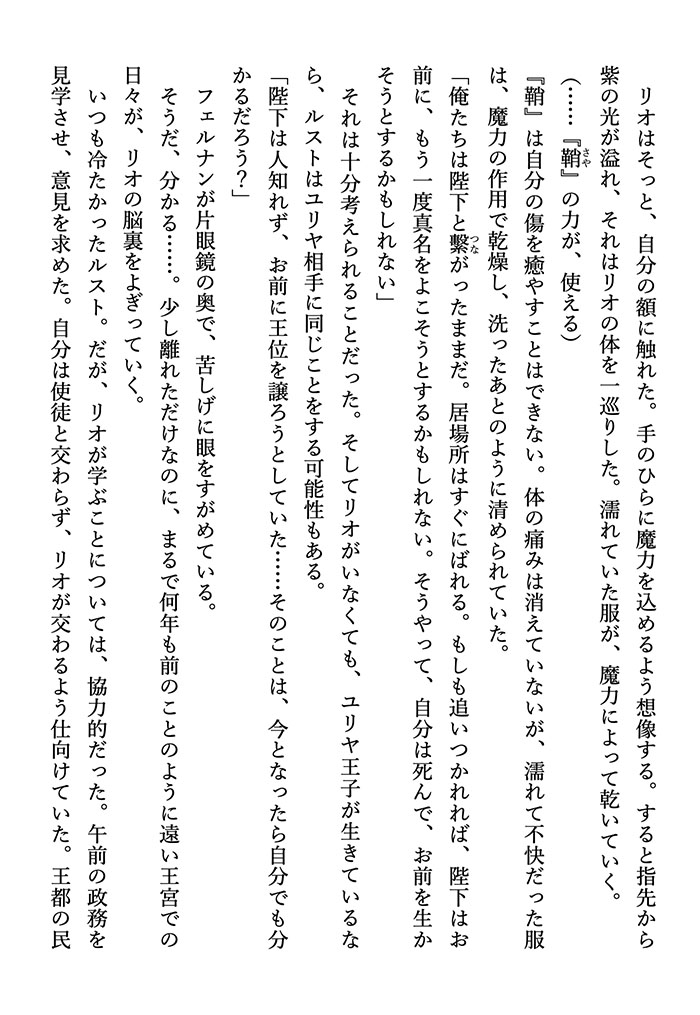 リオはそっと、自分の額に触れた。手のひらに魔力を込めるよう想像する。すると指先から
紫の光が溢れ、それはリオの体を一巡りした。濡れていた服が、魔力によって乾いていく。
（……『鞘さや』の力が、使える）
『鞘』は自分の傷を癒やすことはできない。体の痛みは消えていないが、濡れて不快だった服
は、魔力の作用で乾燥し、洗ったあとのように清められていた。
「俺たちは陛下と繫つながったままだ。居場所はすぐにばれる。もしも追いつかれれば、陛下はお
前に、もう一度真名をよこそうとするかもしれない。そうやって、自分は死んで、お前を生か
そうとするかもしれない」
　それは十分考えられることだった。そしてリオがいなくても、ユリヤ王子が生きているな
ら、ルストはユリヤ相手に同じことをする可能性もある。
「陛下は人知れず、お前に王位を譲ろうとしていた……そのことは、今となったら自分でも分
かるだろう？」
　フェルナンが片眼鏡の奥で、苦しげに眼をすがめている。
　そうだ、分かる……。少し離れただけなのに、まるで何年も前のことのように遠い王宮での
日々が、リオの脳裏をよぎっていく。
　いつも冷たかったルスト。だが、リオが学ぶことについては、協力的だった。午前の政務を
見学させ、意見を求めた。自分は使徒と交わらず、リオが交わるよう仕向けていた。王都の民